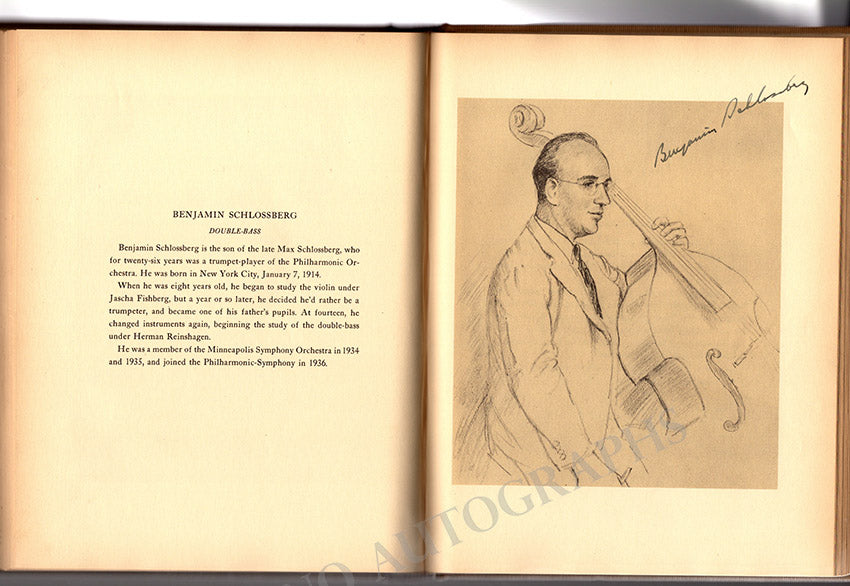 BENJAMIN SCHLOSSBERG
DOUBLE-BASS
Benjamin Schlossberg is the son of the late Max Schlossberg, who
for twenty-six years was a trumpet-player of the Philharmonic Or-
chestra. He was born in New York City, January 7, 1914.
When he was eight years old, he began to study the violin under
Jascha Fishberg, but a year or so later, he decided he'd rather be a
trumpeter, and became one of his father's pupils. At fourteen, he
changed instruments again, beginning the study of the double-bass
under Herman Reinshagen.
He was a member of the Minneapolis Symphony Orchestra in 1934
and 1935, and joined the Philharmonic-Symphony in 1936.
Benjamin Schlossberg
AUTOGRAPHS